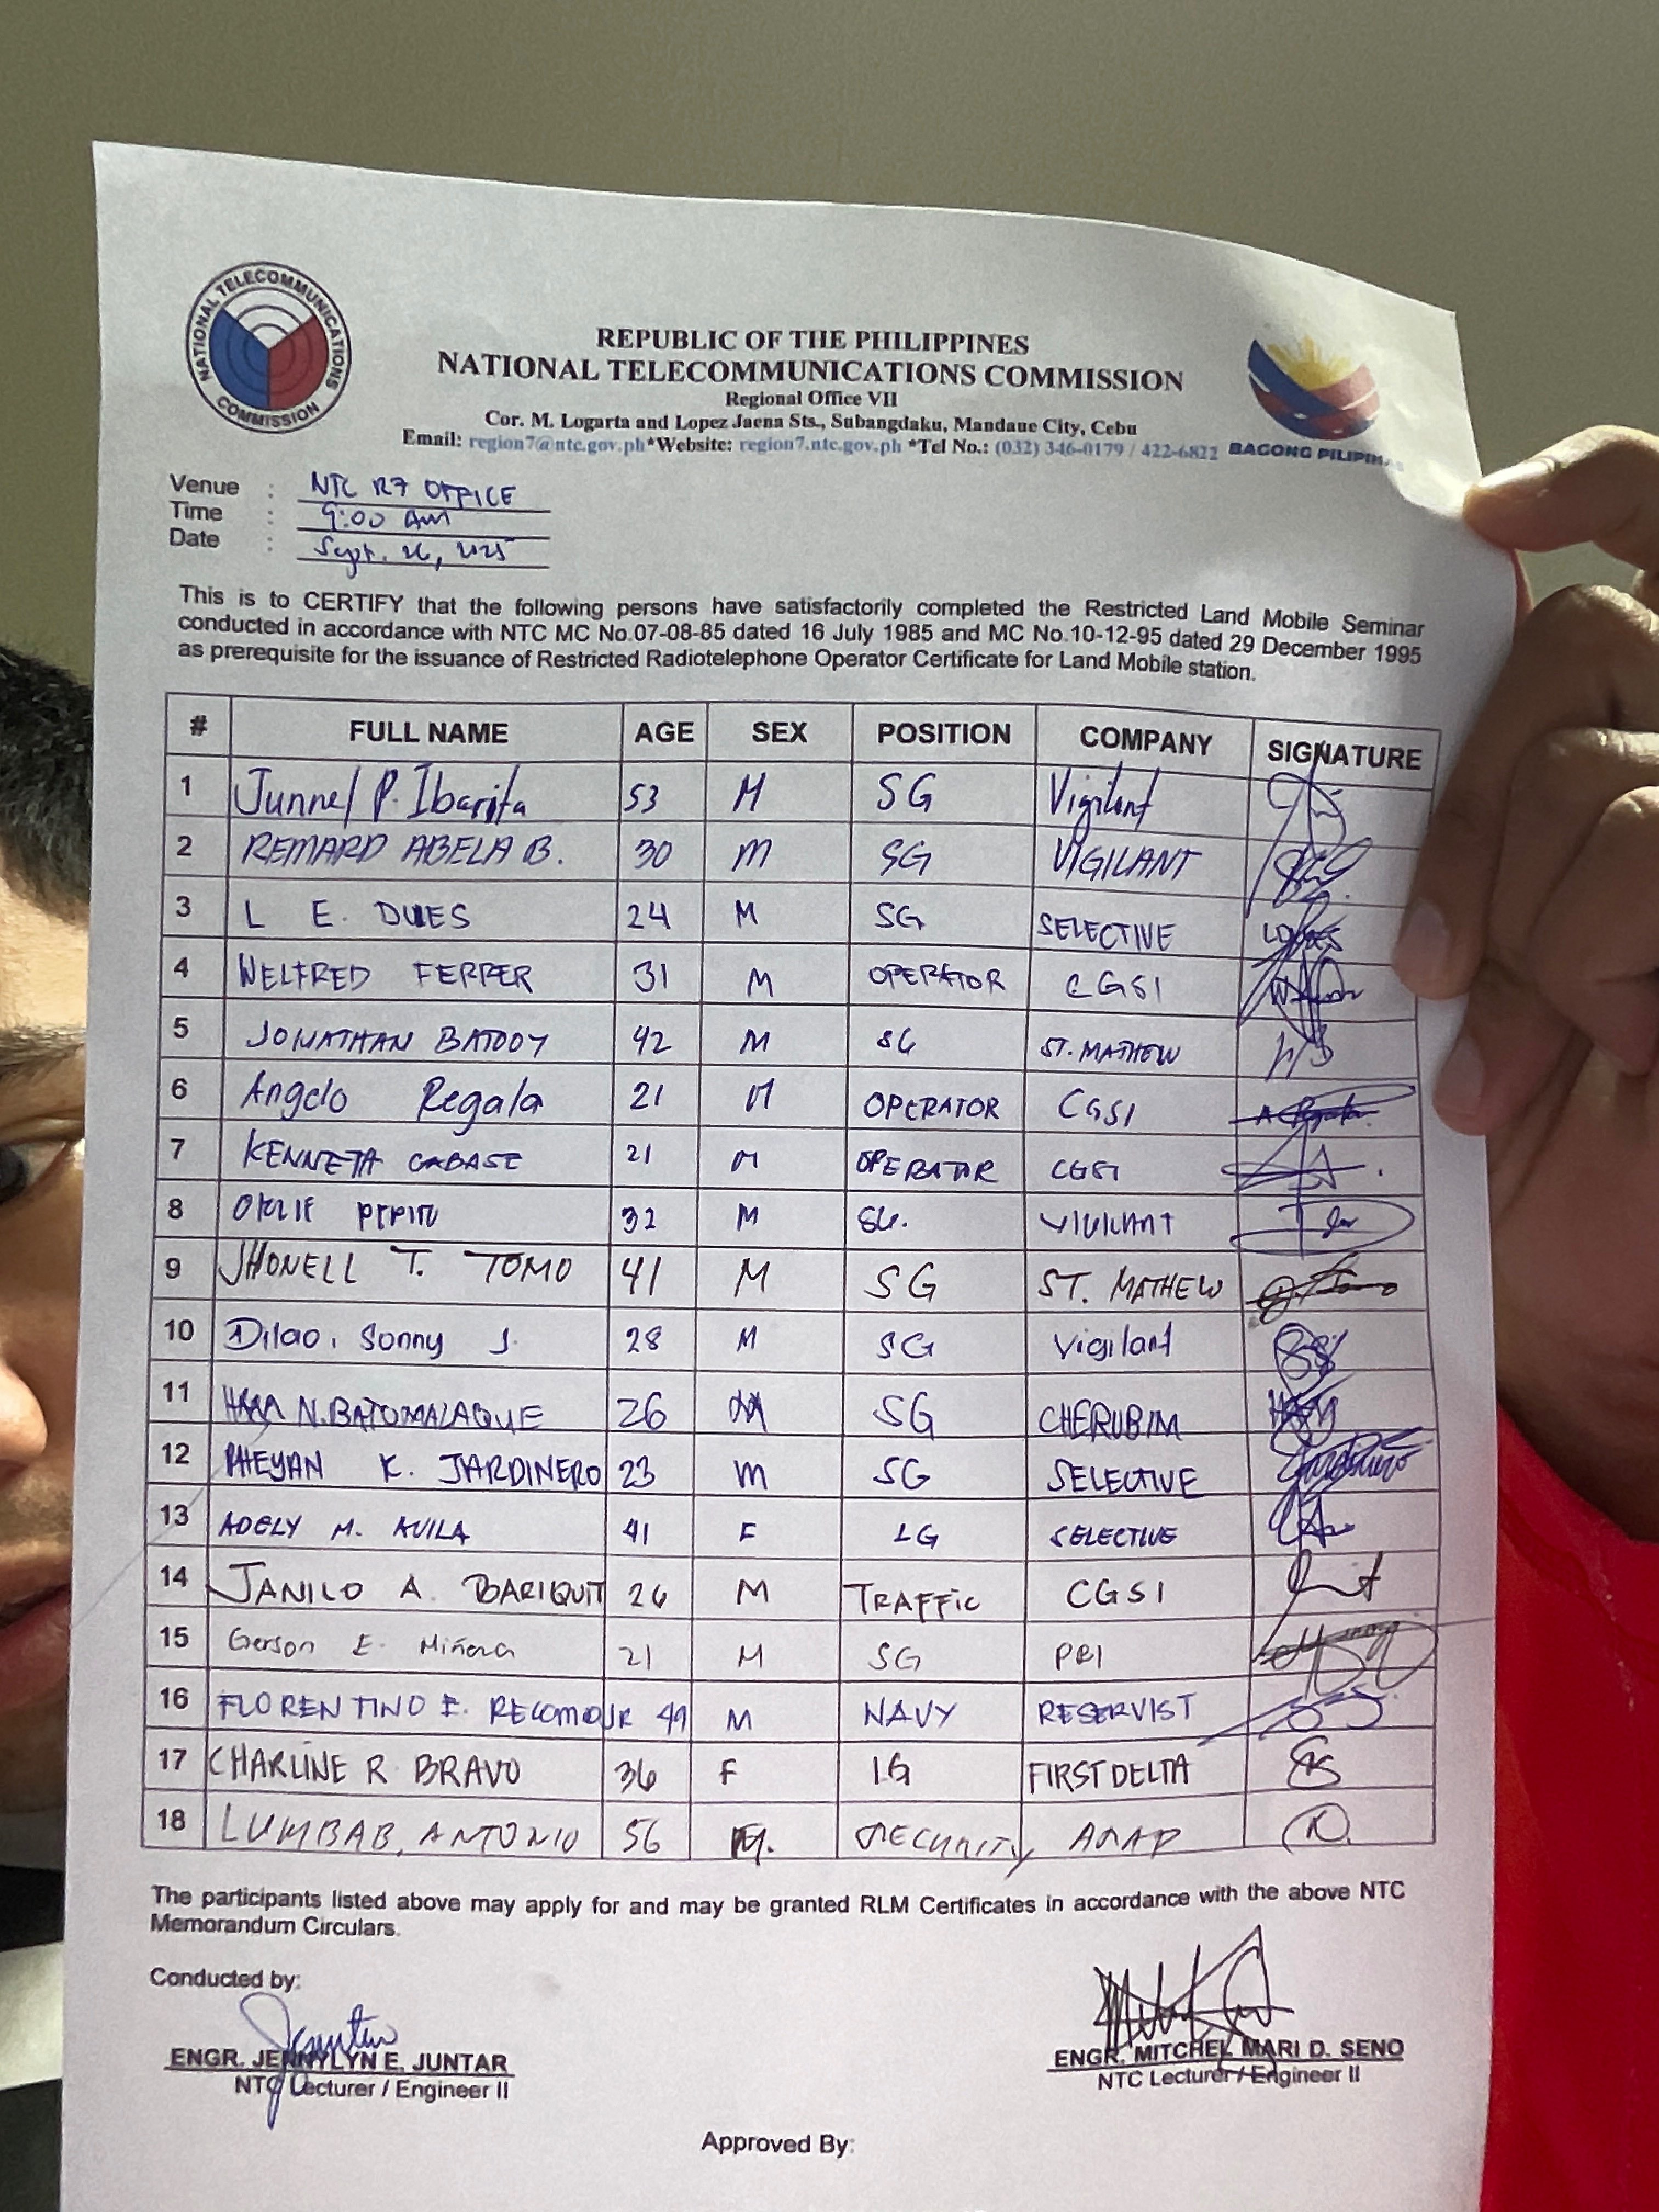 NATIONAL TELECOMMUNICATIONS COMMISSION
REPUBLIC OF THE PHILIPPINES
NATIONAL TELECOMMUNICATIONS COMMISSION
Regional Office VII
Cor. M. Logarta and Lopez Jaena Sts., Subangdaku, Mandaue City, Cebu
Email: region7@ntc.gov.ph*Website: region7.ntc.gov.ph *Tel No.: (032) 346-0179 / 422-6822
BAGONG PILIPINAS
Venue : NTC R7 OFFICE
Time : 9:00 AM
Date : Sept. 26, 2025
This is to CERTIFY that the following persons have satisfactorily completed the Restricted Land Mobile Seminar
conducted in accordance with NTC MC No.07-08-85 dated 16 July 1985 and MC No.10-12-95 dated 29 December 1995
as prerequisite for the issuance of Restricted Radiotelephone Operator Certificate for Land Mobile station.
# FULL NAME AGE SEX POSITION COMPANY SIGNATURE
1 Junnel P. Ibarita 53 M SG Vigilant
2 REMARD ABELA B. 30 M SG VIGILANT
3 L E. DUES 24 M SG SELECTIVE
4 WELFRED FERRER 31 M OPERATOR CGSI
5 JONATHAN BATOOY 42 M SG ST. MATHEW
6 Angelo Regala 21 M OPERATOR CGSI
7 KENNETH CABASE 21 M OPERATOR CGSI
8 PEPITO 32 M SG. VIGILANT
9 JHONELL T. TOMO 41 M SG ST. MATHEW
10 Dilao, Sonny J. 28 M SG Vigilant
11 N. BATOMALAQUE 26 M SG CHERUBIM
12 RHEYAN K. JARDINERO 23 M SG SELECTIVE
13 ADELY M. AVILA 41 F LG SELECTIVE
14 JANILO A. BARIQUIT 26 M TRAFFIC CGSI
15 Gerson E. Miñoza 21 M SG PBI
16 FLORENTINO E. RECOMO JR 49 M NAVY RESERVIST
17 CHARLINE R. BRAVO 36 F LG FIRST DELTA
18 LUMBAB, ANTONIO 56 M. SECURITY
The participants listed above may apply for and may be granted RLM Certificates in accordance with the above NTC
Memorandum Circulars.
Conducted by:
ENGR. JENNYLYN E. JUNTAR
NTC Lecturer / Engineer II
ENGR. MITCHEL MARI D. SENO
NTC Lecturer / Engineer II
Approved By: